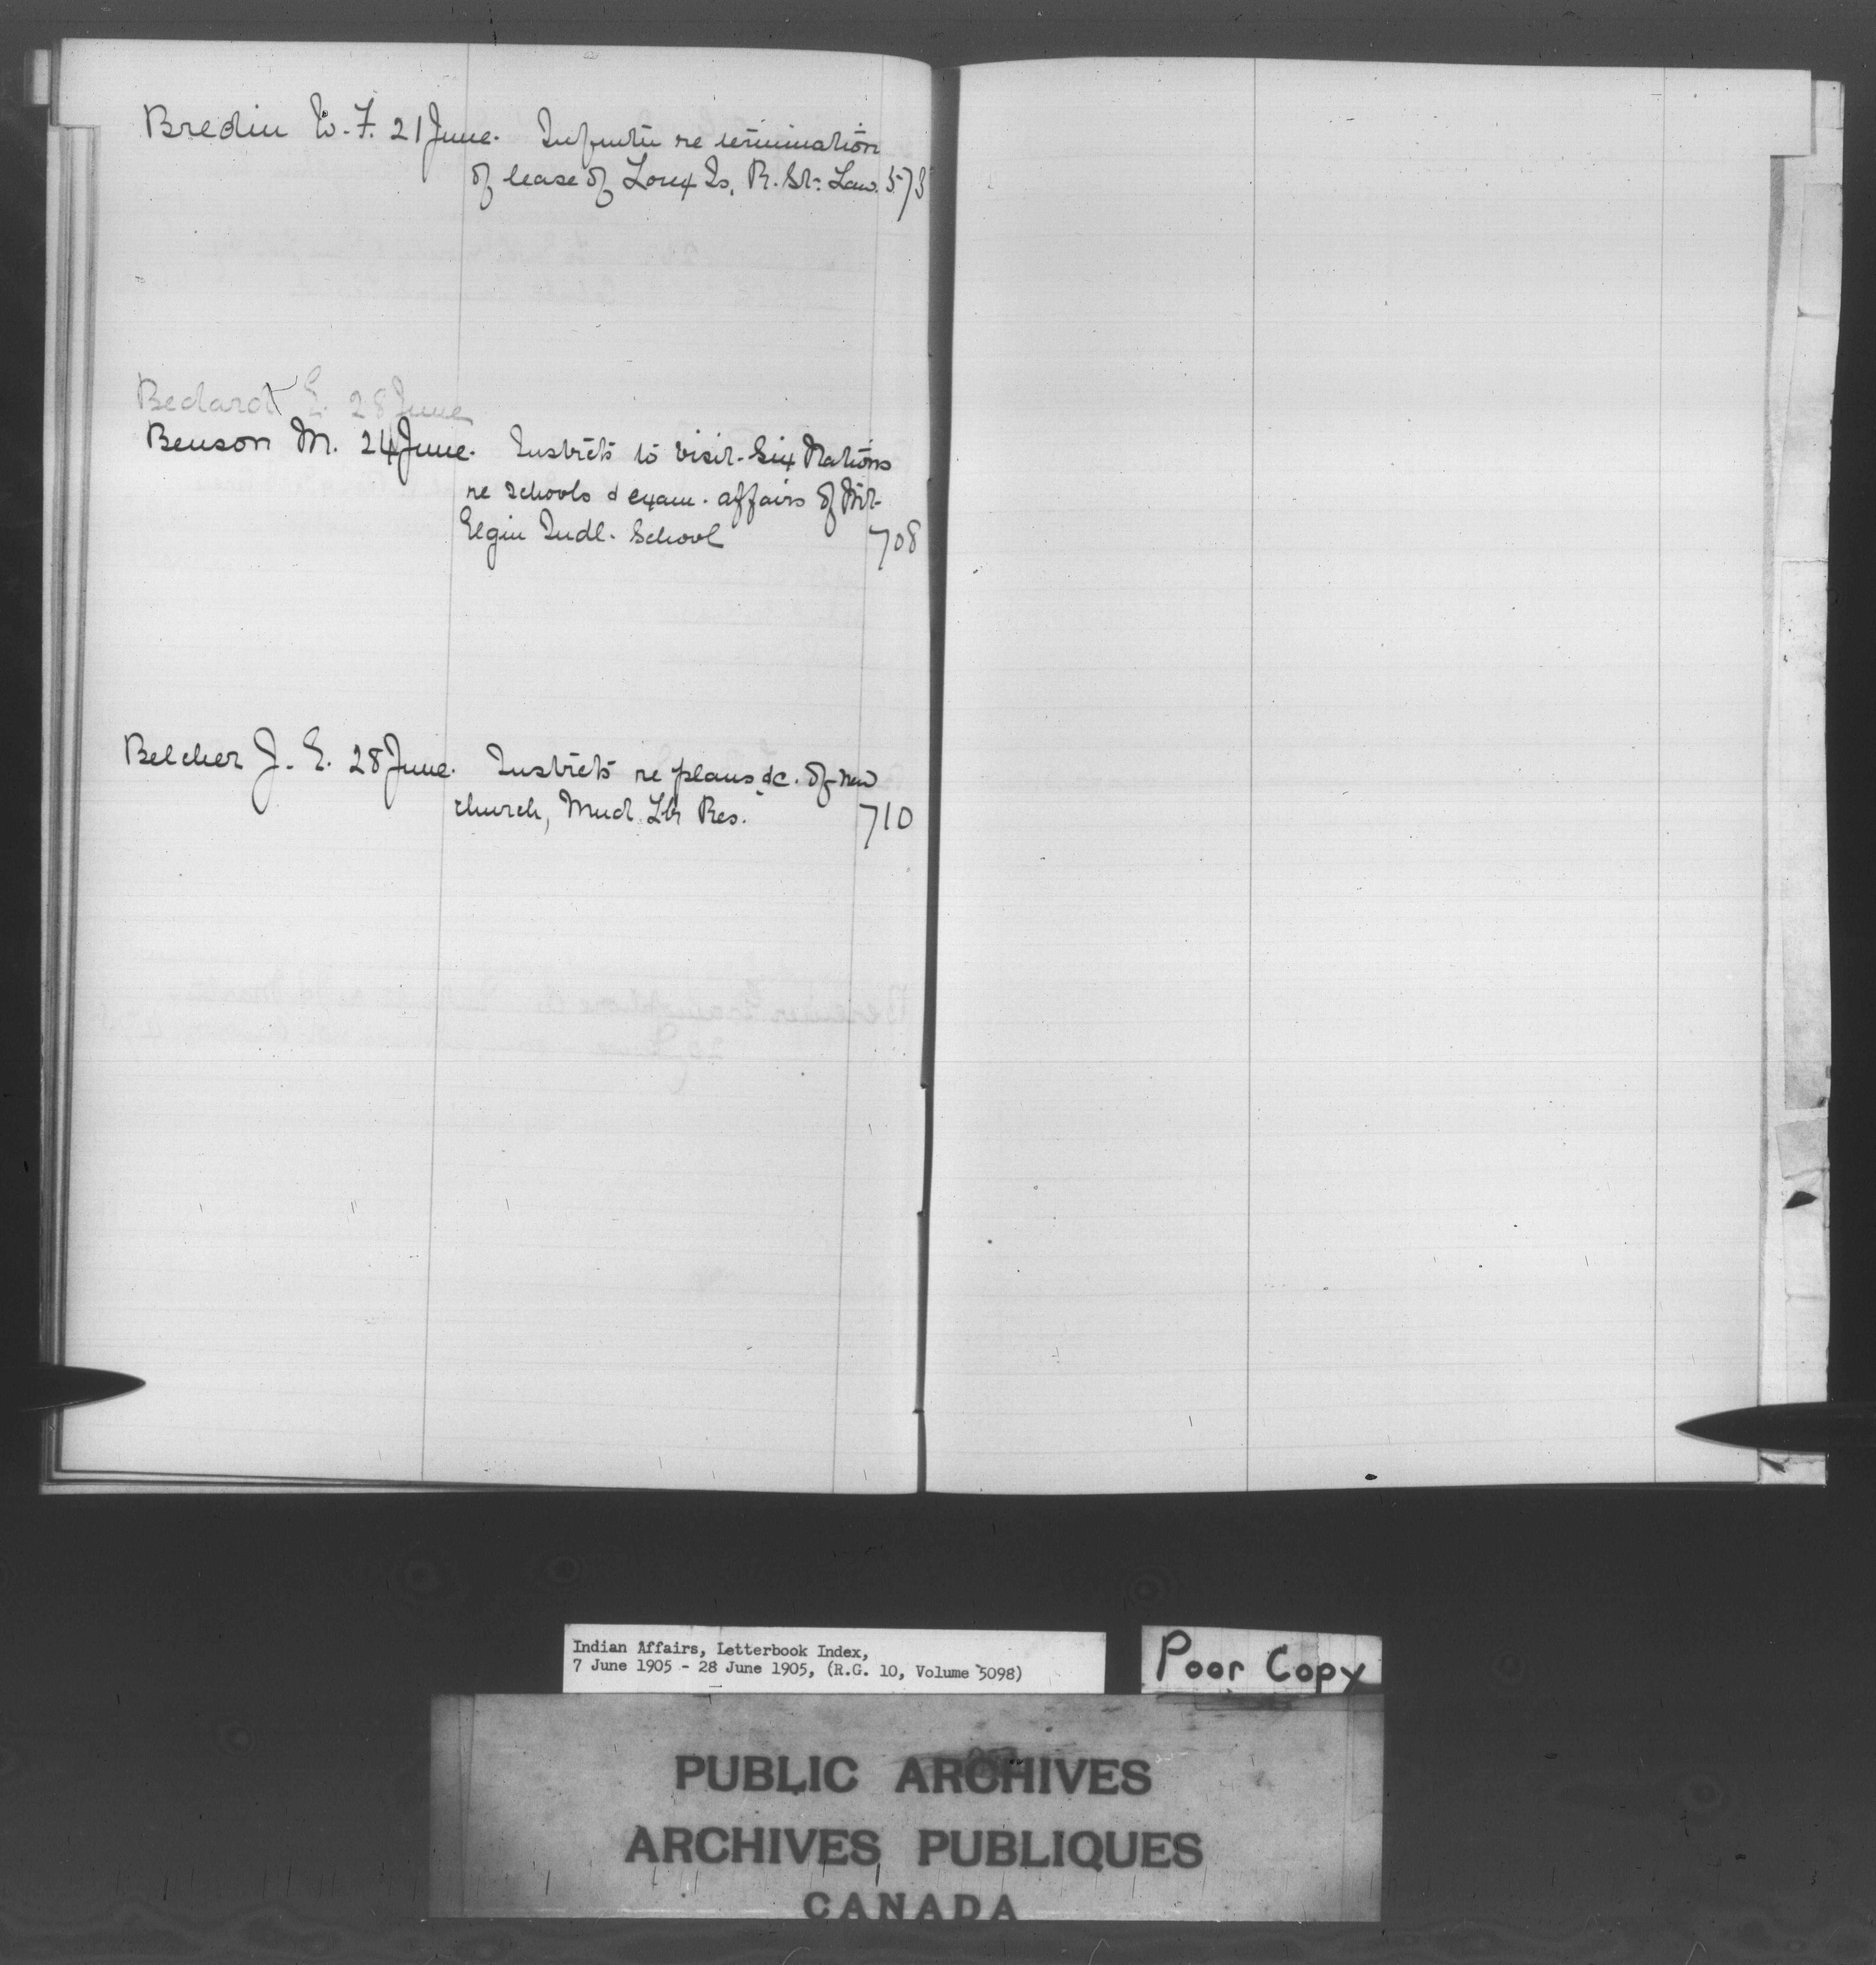 Bredin W. F. 21 June. Infmtn re termination
of lease of Lonex Is, R. St. Law. 573
Bedard E. 28 June
Benson M. 24 June. Instrcts to visit Six Nations
re schools & exam. affairs of Mt.
Elgin Indl. School 708
Belcher J. E. 28 June. Instrcts re plans &c. of new
church, Mud Lk Res. 710
Indian Affairs, Letterbook Index,
7 June 1905 - 28 June 1905, (R.G. 10, Volume 5098)
Poor Copy
PUBLIC ARCHIVES
ARCHIVES PUBLIQUES
CANADA